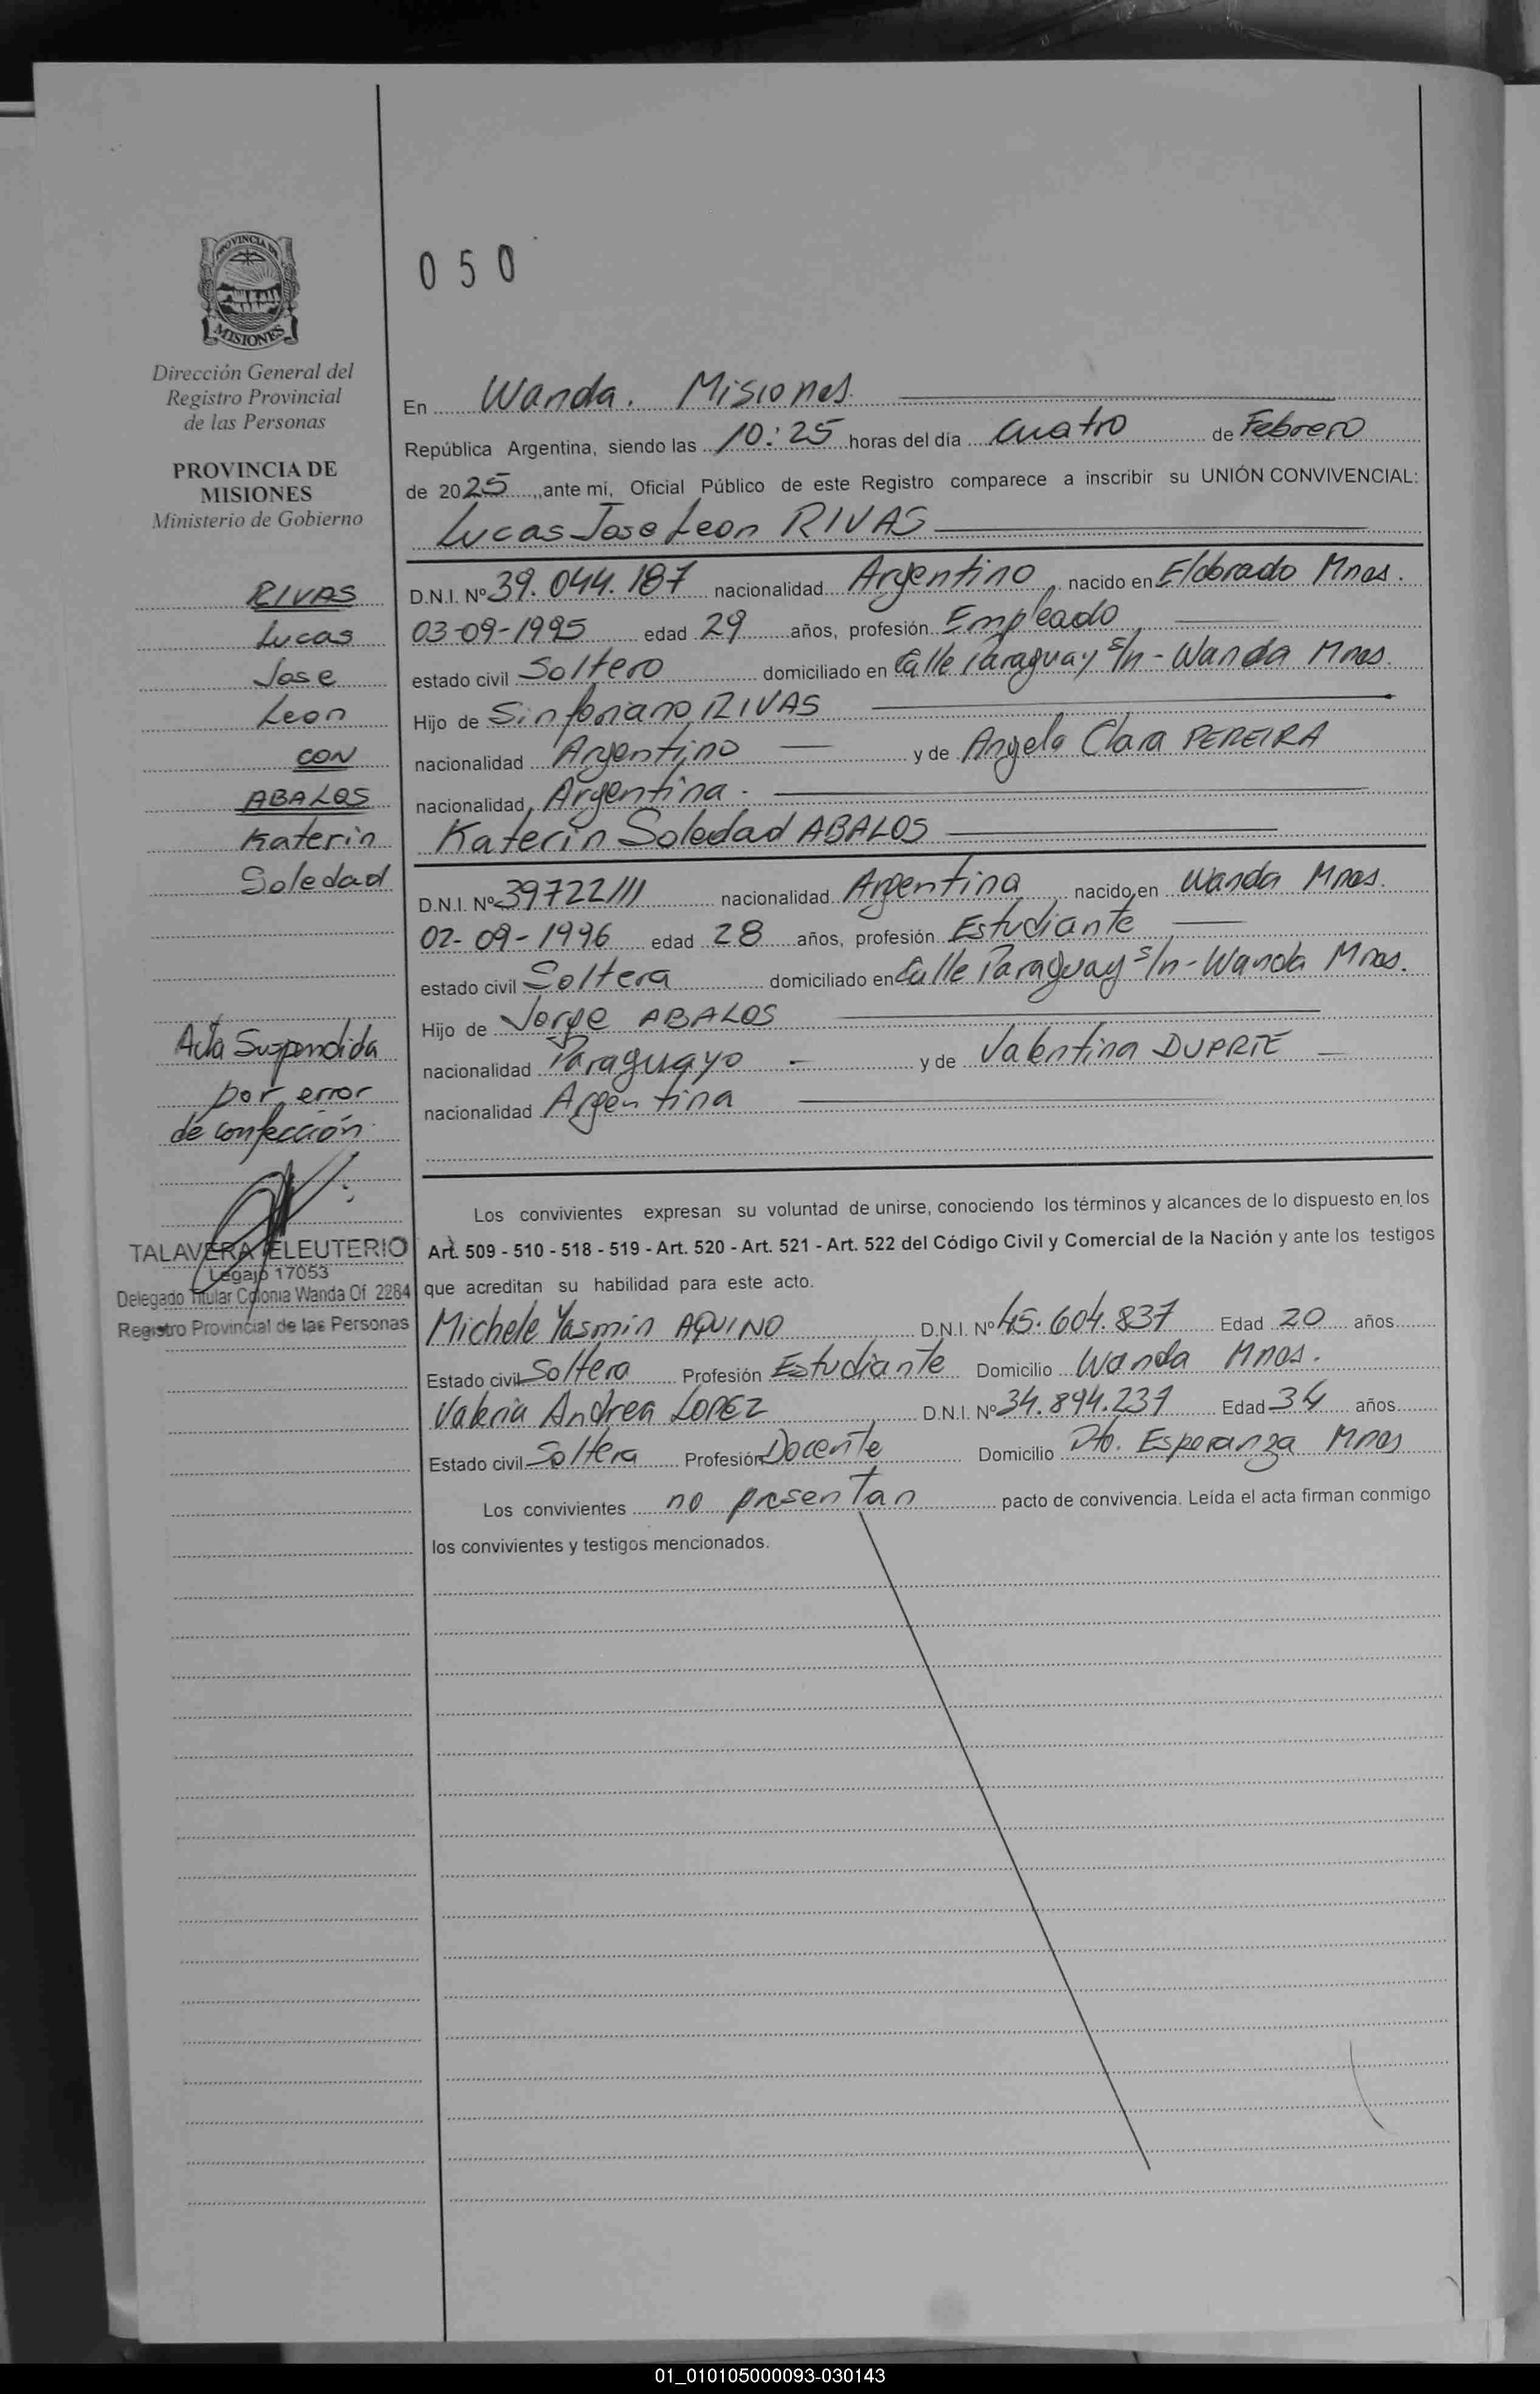 PROVINCIA DE
MISIONES
Dirección General del
Registro Provincial
de las Personas
PROVINCIA DE
MISIONES
Ministerio de Gobierno
RIVAS
Lucas
Jose
Leon
CON
ABALOS
Katerin
Soledad
Acta Suspendida
por error
de confección
TALAVERA ELEUTERIO
Legajo 17053
Delegado Titular Colonia Wanda Of. 2284
Registro Provincial de las Personas
050
En Wanda. Misiones.
República Argentina, siendo las 10:25 horas del día cuatro de Febrero
de 2025, ante mi, Oficial Público de este Registro comparece a inscribir su UNIÓN CONVIVENCIAL:
Lucas Jose Leon RIVAS
D.N.I. Nº 39.044.187 nacionalidad Argentino, nacido en Eldorado Mnes.
03-09-1995 edad 29 años, profesión Empleado
estado civil Soltero domiciliado en Calle Paraguay s/n - Wanda Mnes.
Hijo de Sinforiano RIVAS
nacionalidad Argentino y de Angela Clara PEREIRA
nacionalidad Argentina.
Katerin Soledad ABALOS
D.N.I. Nº 39722111 nacionalidad Argentina nacido en Wanda Mnes.
02-09-1996 edad 28 años, profesión Estudiante
estado civil Soltera domiciliado en Calle Paraguay s/n - Wanda Mnes.
Hijo de Jorge ABALOS
nacionalidad Paraguayo - y de Valentina DUARTE
nacionalidad Argentina
Los convivientes expresan su voluntad de unirse, conociendo los términos y alcances de lo dispuesto en los
Art. 509 - 510 - 518 - 519 - Art. 520 - Art. 521 - Art. 522 del Código Civil y Comercial de la Nación y ante los testigos
que acreditan su habilidad para este acto.
Michele Yasmin AQUINO D.N.I. Nº 45.604.837 Edad 20 años
Estado civil Soltera Profesión Estudiante Domicilio Wanda Mnes.
Valeria Andrea LOPEZ D.N.I. Nº 34.894.237 Edad 34 años
Estado civil Soltera Profesión Docente Domicilio Pto. Esperanza Mnes
Los convivientes no presentan pacto de convivencia. Leída el acta firman conmigo
los convivientes y testigos mencionados.
01_010105000093-030143